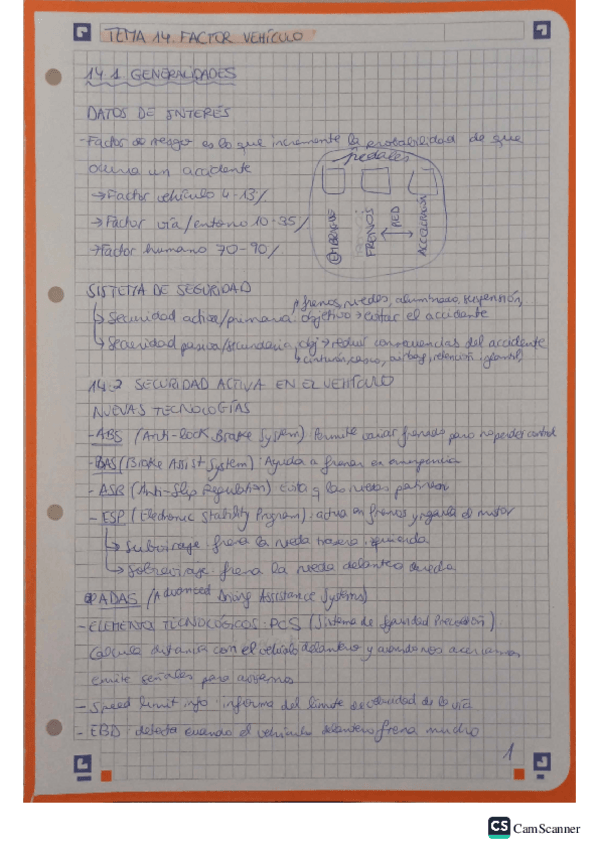 TEMA 14. FACTOR VEHÍCULO
14.1 GENERALIDADES
DATOS DE INTERÉS
- Factor de riesgo es lo que incremente la probabilidad de que
ocurra un accidente
→ Factor vehículo 4-13%
→ Factor vía/entorno 10-35%
→ Factor humano 70-90%
pedales
EMBRAGUE
FRENOS
FRENOS
PIED
ACELERACIÓN
SISTEMA DE SEGURIDAD
frenos, ruedas, alumbrado, suspensión,
↳ Seguridad activa/primaria: objetivo → evitar el accidente
↳ Seguridad pasiva/secundaria, obj → reducir consecuencias del accidente
↳ cinturón, casco, airbag, retención
14.2 SEGURIDAD ACTIVA EN EL VEHÍCULO
NUEVAS TECNOLOGÍAS
- ABS (Anti-lock Brake System) Permite variar frenado para no perder control
- BAS (Brake Assist System): Ayuda a frenar en emergencia
- ASR (Anti-Slip Regulation): evita q las ruedas patinen
- ESP (Electronic Stability Program): actua en frenos y regula el motor
↳ Subviraje: frena la rueda trasera izquierda
↳ Sobreviraje: frena la rueda delantera derecha
ADAS (Advanced Driving Assistance Systems)
- ELEMENTOS TECNOLÓGICOS: PCS (Sistema de Seguridad Precolisión)
Calcula distancia con el vehículo delantero y cuando nos acercamos
emite señales para avisarnos
- Speed limit info: informa del límite de velocidad de la vía
- EBD: detecta cuando el vehículo delantero frena mucho
1
CS CamScanner